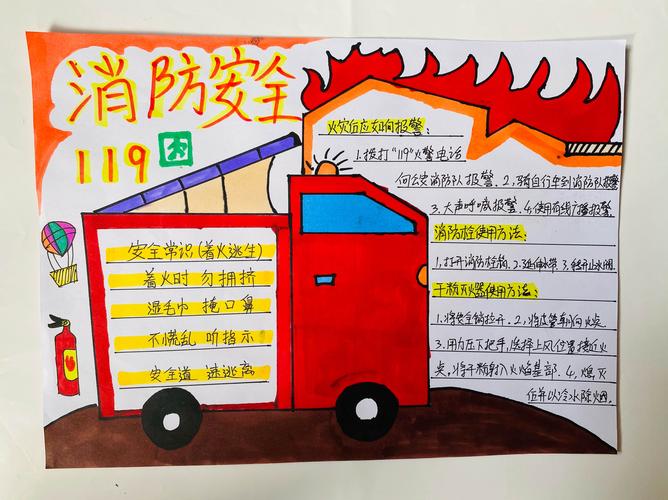 消防安全
119
安全常识(着火逃生)
着火时 勿拥挤
湿毛巾 掩口鼻
不慌乱 听指示
安全道 速逃离
火灾后应如何报警:
1.拨打"119"火警电话
向公安消防队报警. 2,骑自行车到消防队报警
3.大声呼喊报警. 4,使用有线广播报警.
消防栓使用方法:
1.打开消防栓 2.延伸水带 3.
干粉灭火器使用方法:
1.将安全销拉开. 2,将皮管朝向火焰
3.用力压下把手,选择上风位置接近火
焰,将干粉射入火焰基部. 4,熄灭
后并以冷水除烟.